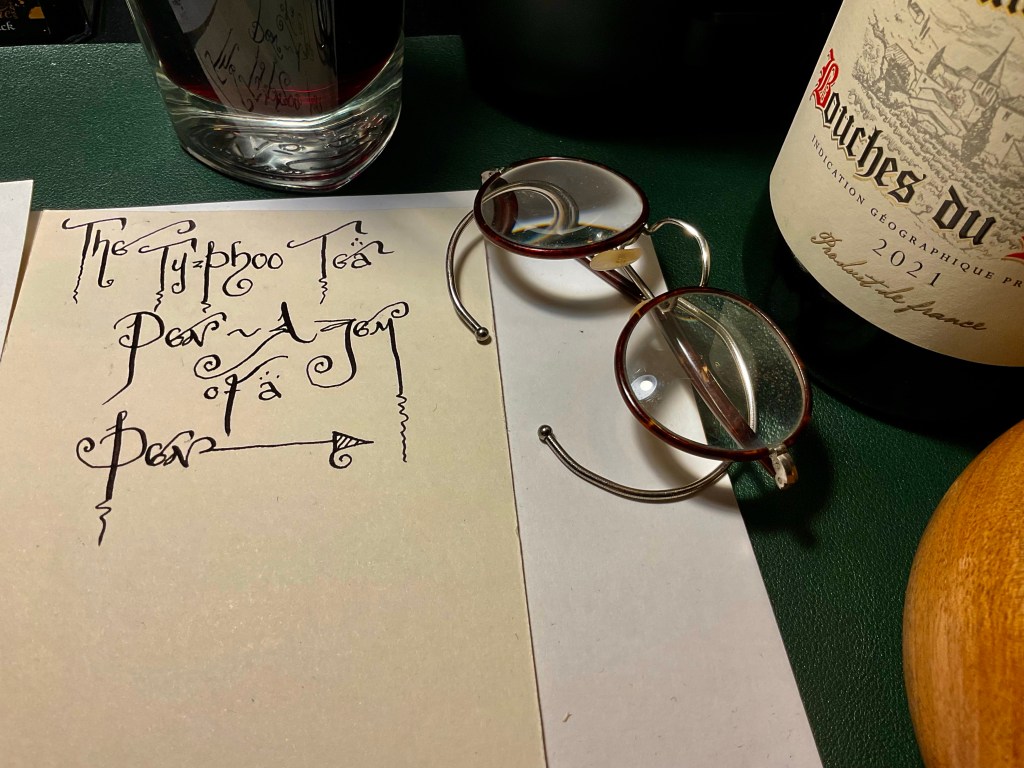 The Ty=phoo Tea
Pen ~ A gem
of a
Pen
Bouches du
INDICATION GÉOGRAPHIQUE PR
2021
Produit de france